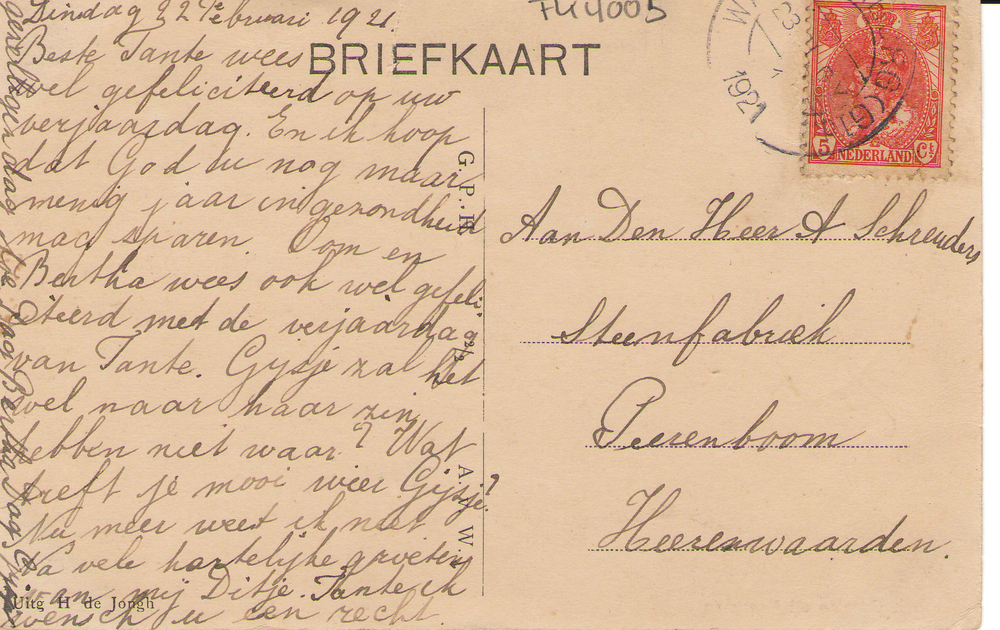 Dinsdag 22 Februari 1921.
Beste Tante wees
wel gefeliciteerd op uw
verjaardag. En ik hoop
dat God u nog maar
menig jaar in gezondheid
mag sparen Oom en
Bertha wees ook wel gefeli-
citeerd met de verjaardag
van Tante. Gijsje zal het
wel naar haar zin
hebben niet waar? Wat
treft je mooi weer Gijsje?
Nu meer weet ik niet
Na vele hartelijke groeten
van mij Ditje. Tante ik
wensch u een recht
gezelligen dag
Dag Bertha Dag
BRIEFKAART
TK4005
1921
5 NEDERLAND Ct
Aan Den Heer A Schreuders
Steenfabriek
Peerenboom
Heerenwaarden.
G. P.
A. W.
Uitg H de Jongh